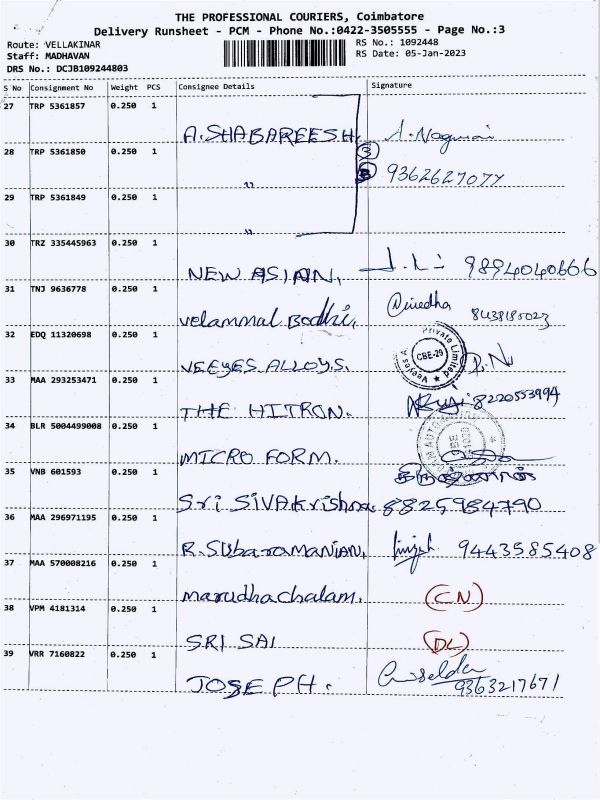 THE PROFESSIONAL COURIERS, Coimbatore
Delivery Runsheet - PCM - Phone No.:0422-3505555 - Page No.:3
Route: VELLAKINAR
RS No.: 1092448
Staff: MADHAVAN
RS Date: 05-Jan-2023
DRS No.: DCJB109244803
S No Consignment No Weight PCS Consignee Details Signature
27 TRP 5361857 0.250 1
A.SHABAREESH.
28 TRP 5361850 0.250 1 3
" 9362627077
29 TRP 5361849 0.250 1
"
30 TRZ 335445963 0.250 1
NEW ASIAN, 9894040666
31 TNJ 9636778 0.250 1
Velammal Bodhi, 8438185023
32 EDQ 11320698 0.250 1 Private Limited CBE-29
VEEYES ALLOYS.
33 MAA 293253471 0.250 1
THE HITRON. 8220553994
34 BLR 5004499008 0.250 1
MICRO FORM.
35 VNB 601593 0.250 1
Sri SIVAKrishna 8825984790
36 MAA 296971195 0.250 1
R.SUbaramaNiAN, 9443585408
37 MAA 570008216 0.250 1
marudhachalam. (CN)
38 VPM 4181314 0.250 1
SRI SAI (DL)
39 VRR 7160822 0.250 1
JOSEPH. 9363217671